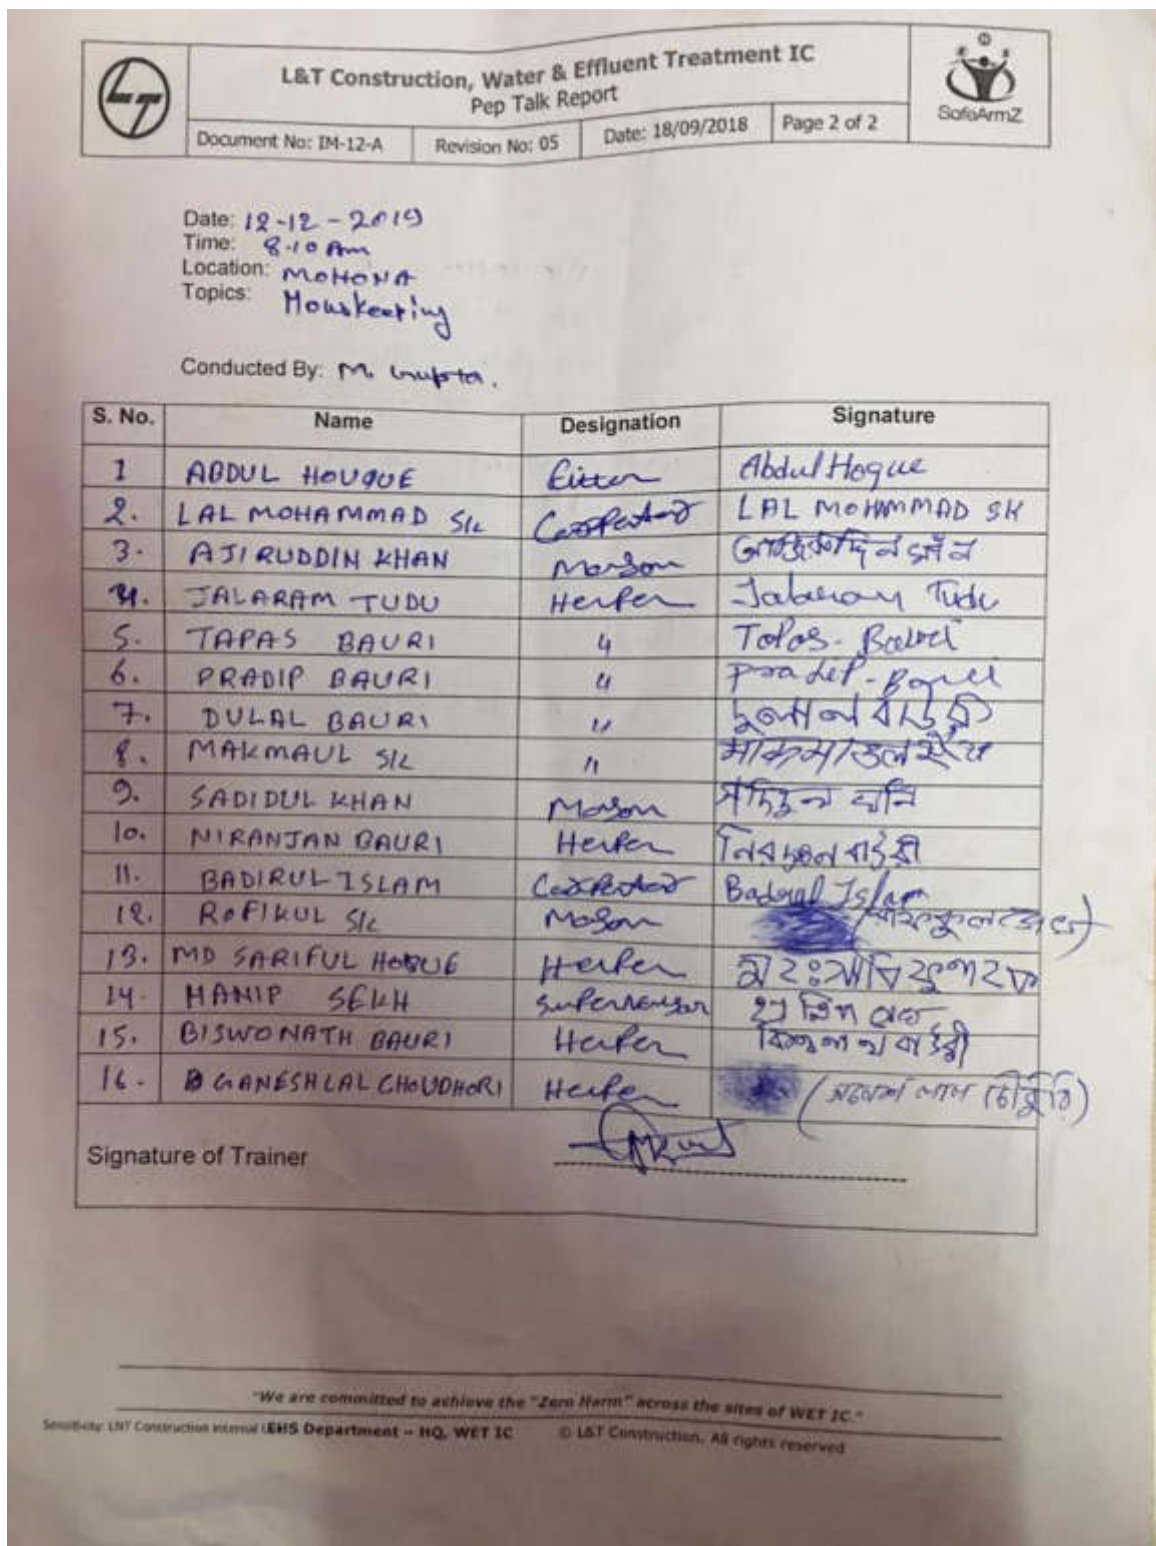 L&T Construction, Water & Effluent Treatment IC
Pep Talk Report
SafeArmZ
Document No: IM-12-A Revision No: 05 Date: 18/09/2018 Page 2 of 2
Date: 12-12-2019
Time: 8.10 Am
Location: MOHONA
Topics: Houskeeping
Conducted By: M. Gupta.
S. No. Name Designation Signature
1 ABDUL HOUQUE Abdul Hoque
2. LAL MOHAMMAD SK LAL MOHAMMAD SK
3. AJIRUDDIN KHAN Mason
4. JALARAM TUDU Herper Jalaram Tudu
5. TAPAS BAURI " Tapas-
6. PRADIP BAURI " Pradip-
7. DULAL BAURI " দুলাল বাউরী
8. MAKMAUL SK "
9. SADIDUL KHAN Mason
10. NIRANJAN BAURI Herper বাউরী
11. BADIRUL ISLAM Badirul Islam
12. ROFIKUL SK Mason
13. MD SARIFUL HOQUE Herper
14. HANIP SEKH
15. BISWONATH BAURI Herper বাউরী
16. GANESHLAL CHOUDHORI Herper
Signature of Trainer
"We are committed to achieve the "Zero Harm" across the sites of WET IC."
Sensitivity: LNT Construction Internal EHS Department – HQ, WET IC © L&T Construction. All rights reserved